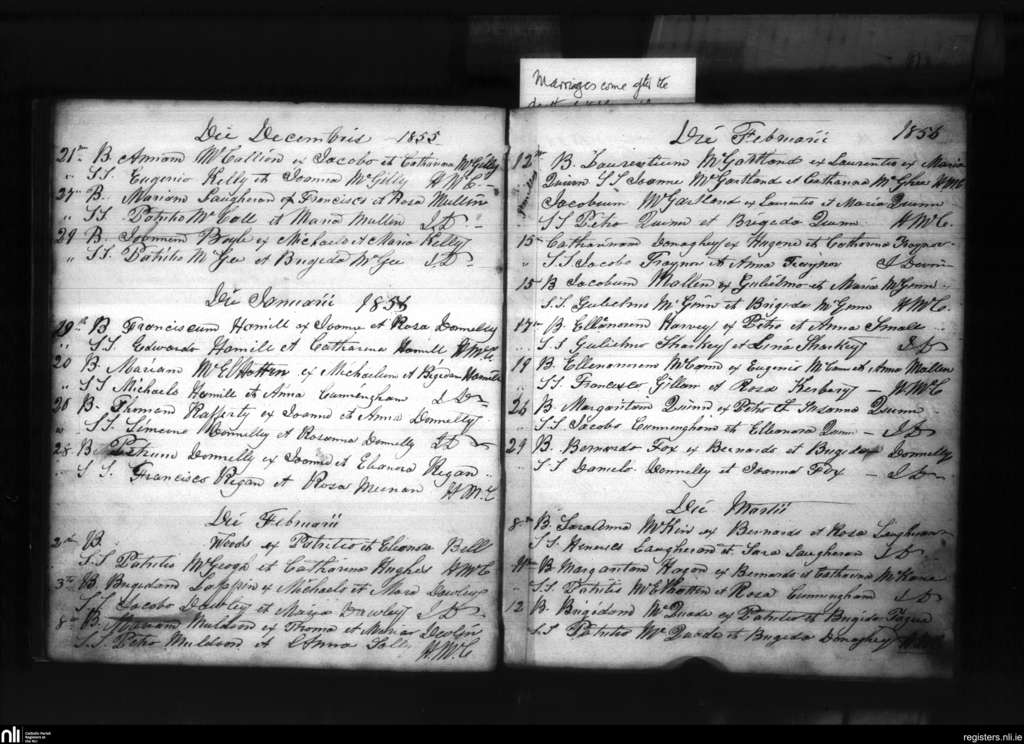 Marriages come after the
Die Decembris 1855
21st B. Annam McCallien ex Jacobo et Catharina McGilly
" SS. Eugenio Kelly et Joanna McGilly H McC
27 B. Mariam Laugheran ex Francisco et Rosa Mullin
" SS Patritio McCall et Maria Mullen J D
29 B. Joannem Boyle ex Michaele et Maria Kelly
" SS. Patritio McGee et Brigida McGee J D
Die Januarii 1856
B Franciscum Hamill ex Joanne et Rosa Donnelly
" SS. Edwardo Hamill et Catharina Hamill H McC
20 B. Mariam McElHatten ex Michaelem et Brigidam Hamill
" SS Michaele Hamill et Anna Cunningham J D
20 B. Thomam Rafferty ex Joanne et Anna Donnelly
" SS. Simeone Donnelly et Rosanna Donnelly J D
28 B Petrum Donnelly ex Joanne et Elianora Regan
SS. Francisco Regan et Rosa Meenan H McC
Die Februarii
2 B Woods ex Patritio et Elianora Bell
SS Patritio McGeogh et Catharina Hughes H McC
3 B Brigidam ex Michaele et Maria Dawley
SS Jacobo Dawley et Maria Dawley J D
8 B. Muldoon ex Thoma et Maria Devlin
SS. Petro Muldoon et Anna H McC
Die Februarii 1856
12th B. Laurentium McGartland ex Laurentio ex Maria
Quinn SS Joanne McGartland et Catharina McGhee H McC
Jacobum McGartland ex Laurentio et Maria Quinn
SS Petro Quinn et Brigida Quinn H McC.
15 Catharinam Donaghey ex Hugene et Catharina Traynor
" SS Jacobo Traynor et Anna Traynor J Devlin
15 B Jacobum Mallen ex Gulielmo et Maria McGinn
SS. Gulielmo McGinn et Brigida McGinn H McC
17th B. Ellenoram Harvey ex Petro et Anna Small
SS Gulielmo Sharkey et Lina Sharkey J D
19 B. Ellenoram McCann ex Eugenio McCann et Anna Mallen
SS. Francisco Gillan et Rosa H McC
26 B. Margaritam Quinn ex Petro et Susanna Quinn
SS Jacobo Cunningham et Ellenora Quinn J D
29 B. Bernardo Fox ex Bernardo et Brigida Donnelly
" SS Daniele Donnelly et Joanna Fox J D
Die Martii
8 B Sara Anna ex Bernardo et Rosa Laugheran
SS. Henrico Laugheran et Sara Laugheran J D
B. Margaritam Hagan ex Bernardo et Catharina McKane
SS. Patritio McElhatten et Rosa Cunningham J D
12 B. Brigidam McQuade ex Patritio et Brigida
SS Patritio McQuade et Brigida Donaghey H McC
nli
Catholic Parish
Registers at
the NLI
registers.nli.ie